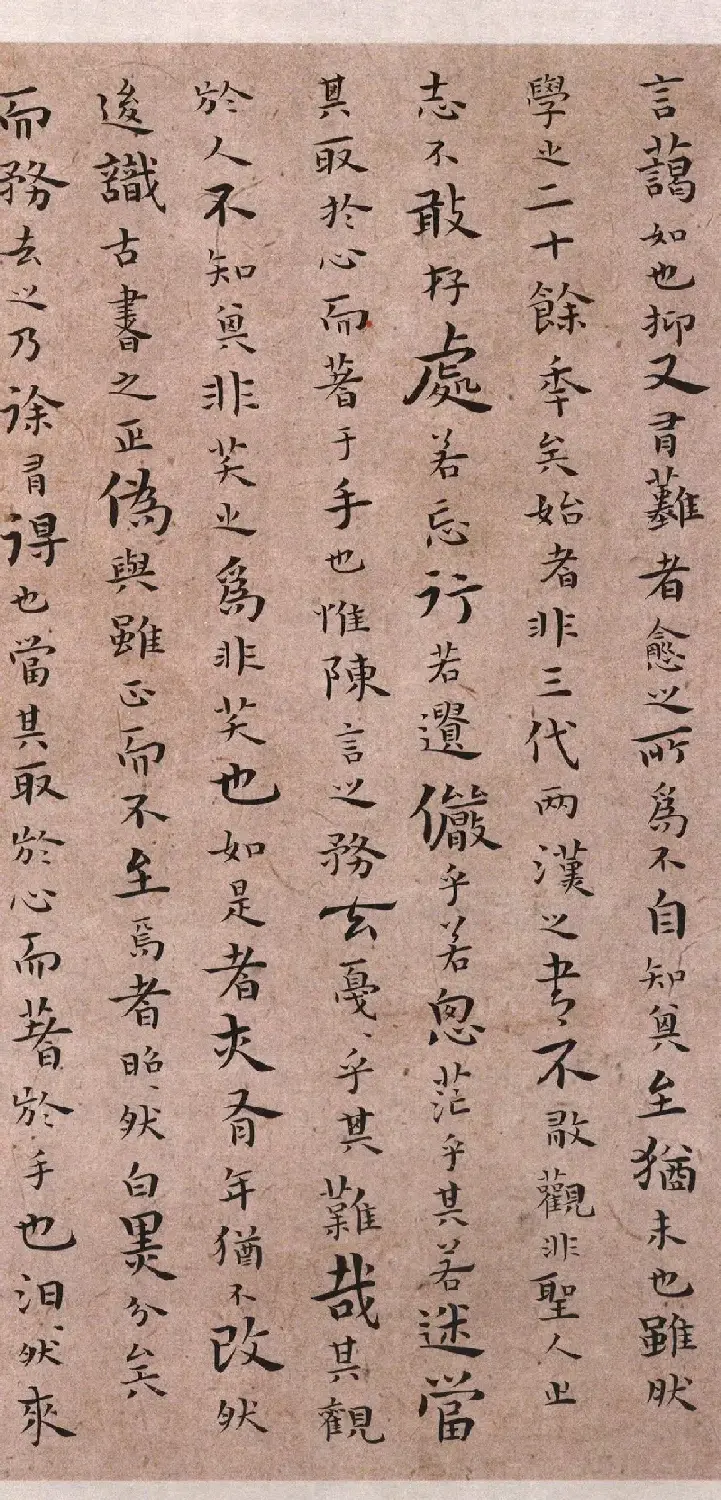 言藹如也抑又有難者愈之所為不自知其至猶未也雖然
學之二十餘年矣始者非三代兩漢之書不敢觀非聖人之
志不敢存處若忘行若遺儼乎若思茫乎其若迷當
其取於心而著于手也惟陳言之務去戛〻乎其難哉其觀
於人不知其非笑之為非笑也如是者亦有年猶不改然
後識古書之正偽與雖正而不至焉者昭〻然白黑分矣
而務去之乃徐有得也當其取於心而著於手也汩〻然來